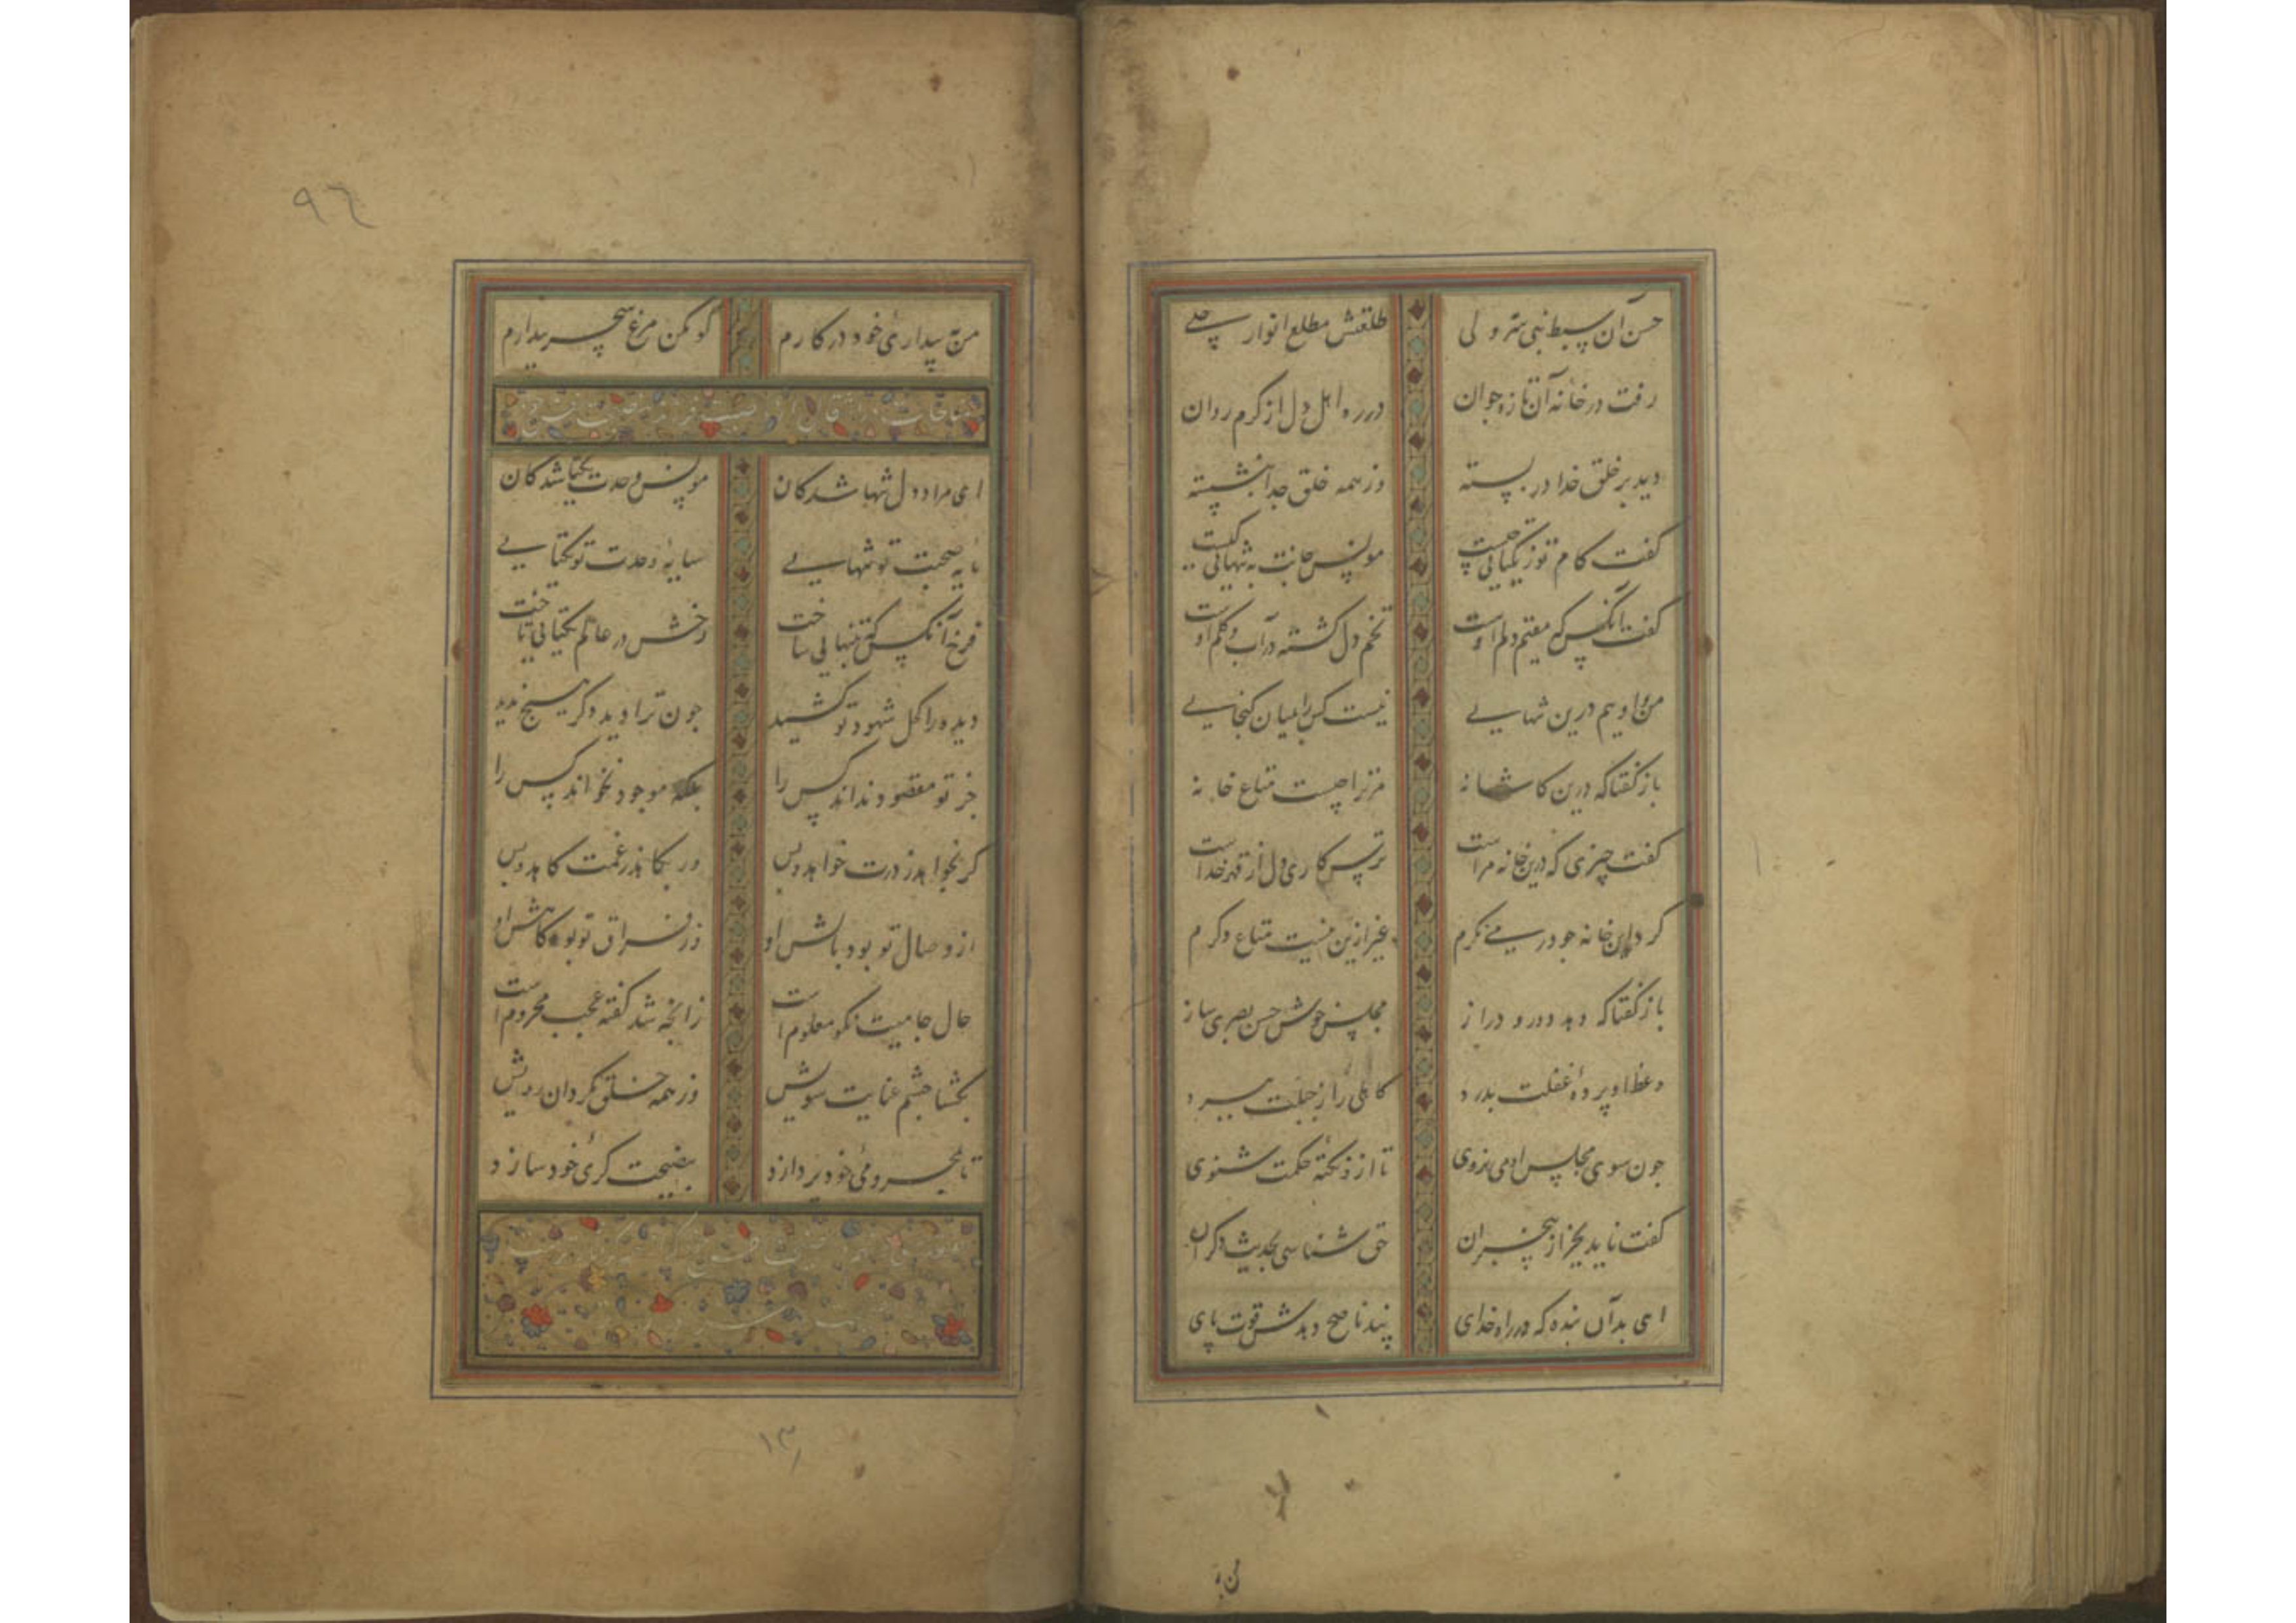 حسن آن سبط نبی سر ولی
طلعتش مطلع انوار جلی
رفت در خانه آن تازه جوان
در ره اهل دل از کرم روان
دید بر خلق خدا در بسته
وز همه خلق جدا بنشسته
گفت کام تو ز یکتایی چیست
مونس جانت به تنهایی کیست
گفت آنکس که مقیم دلم اوست
تخم دل کشته در آب و گلم اوست
من و اویم درین تنهایی
نیست کس را بمیان گنجایی
باز گفتا که درین کاشانه
مر ترا چیست متاع خانه
گفت چیزی که درین خانه مراست
ترس کاری دل از قهر خداست
گرد این خانه چو در می نگرم
غیر ازین نیست متاع دگرم
باز گفتا که دهد دور و دراز
مجلس خوش حسن بصری ساز
وعظ او پرده غفلت بدرد
کاهلی را ز جبلت ببرد
چون سوی مجلس او می نروی
تا ازو نکته حکمت شنوی
گفت ناید بجز از بیخبران
حق شناسی بحدیث دگران
ای بد آن بنده که در راه خدای
پند ناصح دهدش قوت پای
من به
۹۶
من به بیداری خود در کارم
گو مکن مرغ سحر بیدارم
مناجات در انتقال از
ای مراد دل تنها شدگان
مونس وحدت یکتا شدگان
مایه صحبت تو تنهایی
سایه وحدت تو یکتایی
فرخ آنکس که به تنهایی ساخت
رخش در عالم یکتایی تاخت
دیده را کحل شهود تو کشید
چون ترا دید دگر هیچ ندید
جز تو مقصود نداند کس را
بلکه موجود نخواند کس را
گر بخواهد ز درت خواهد و بس
ور بکاهد ز غمت کاهد و بس
از وصال تو بود بالش او
وز فراق تو بود کاهش او
حال جامیت نکو معلوم است
زانچه شد گفته عجب محروم است
بگشا چشم عنایت سویش
وز همه خلق بگردان رویش
تا به محرومی خود پردازد
به نصیحت گری خود سازد
۱۳